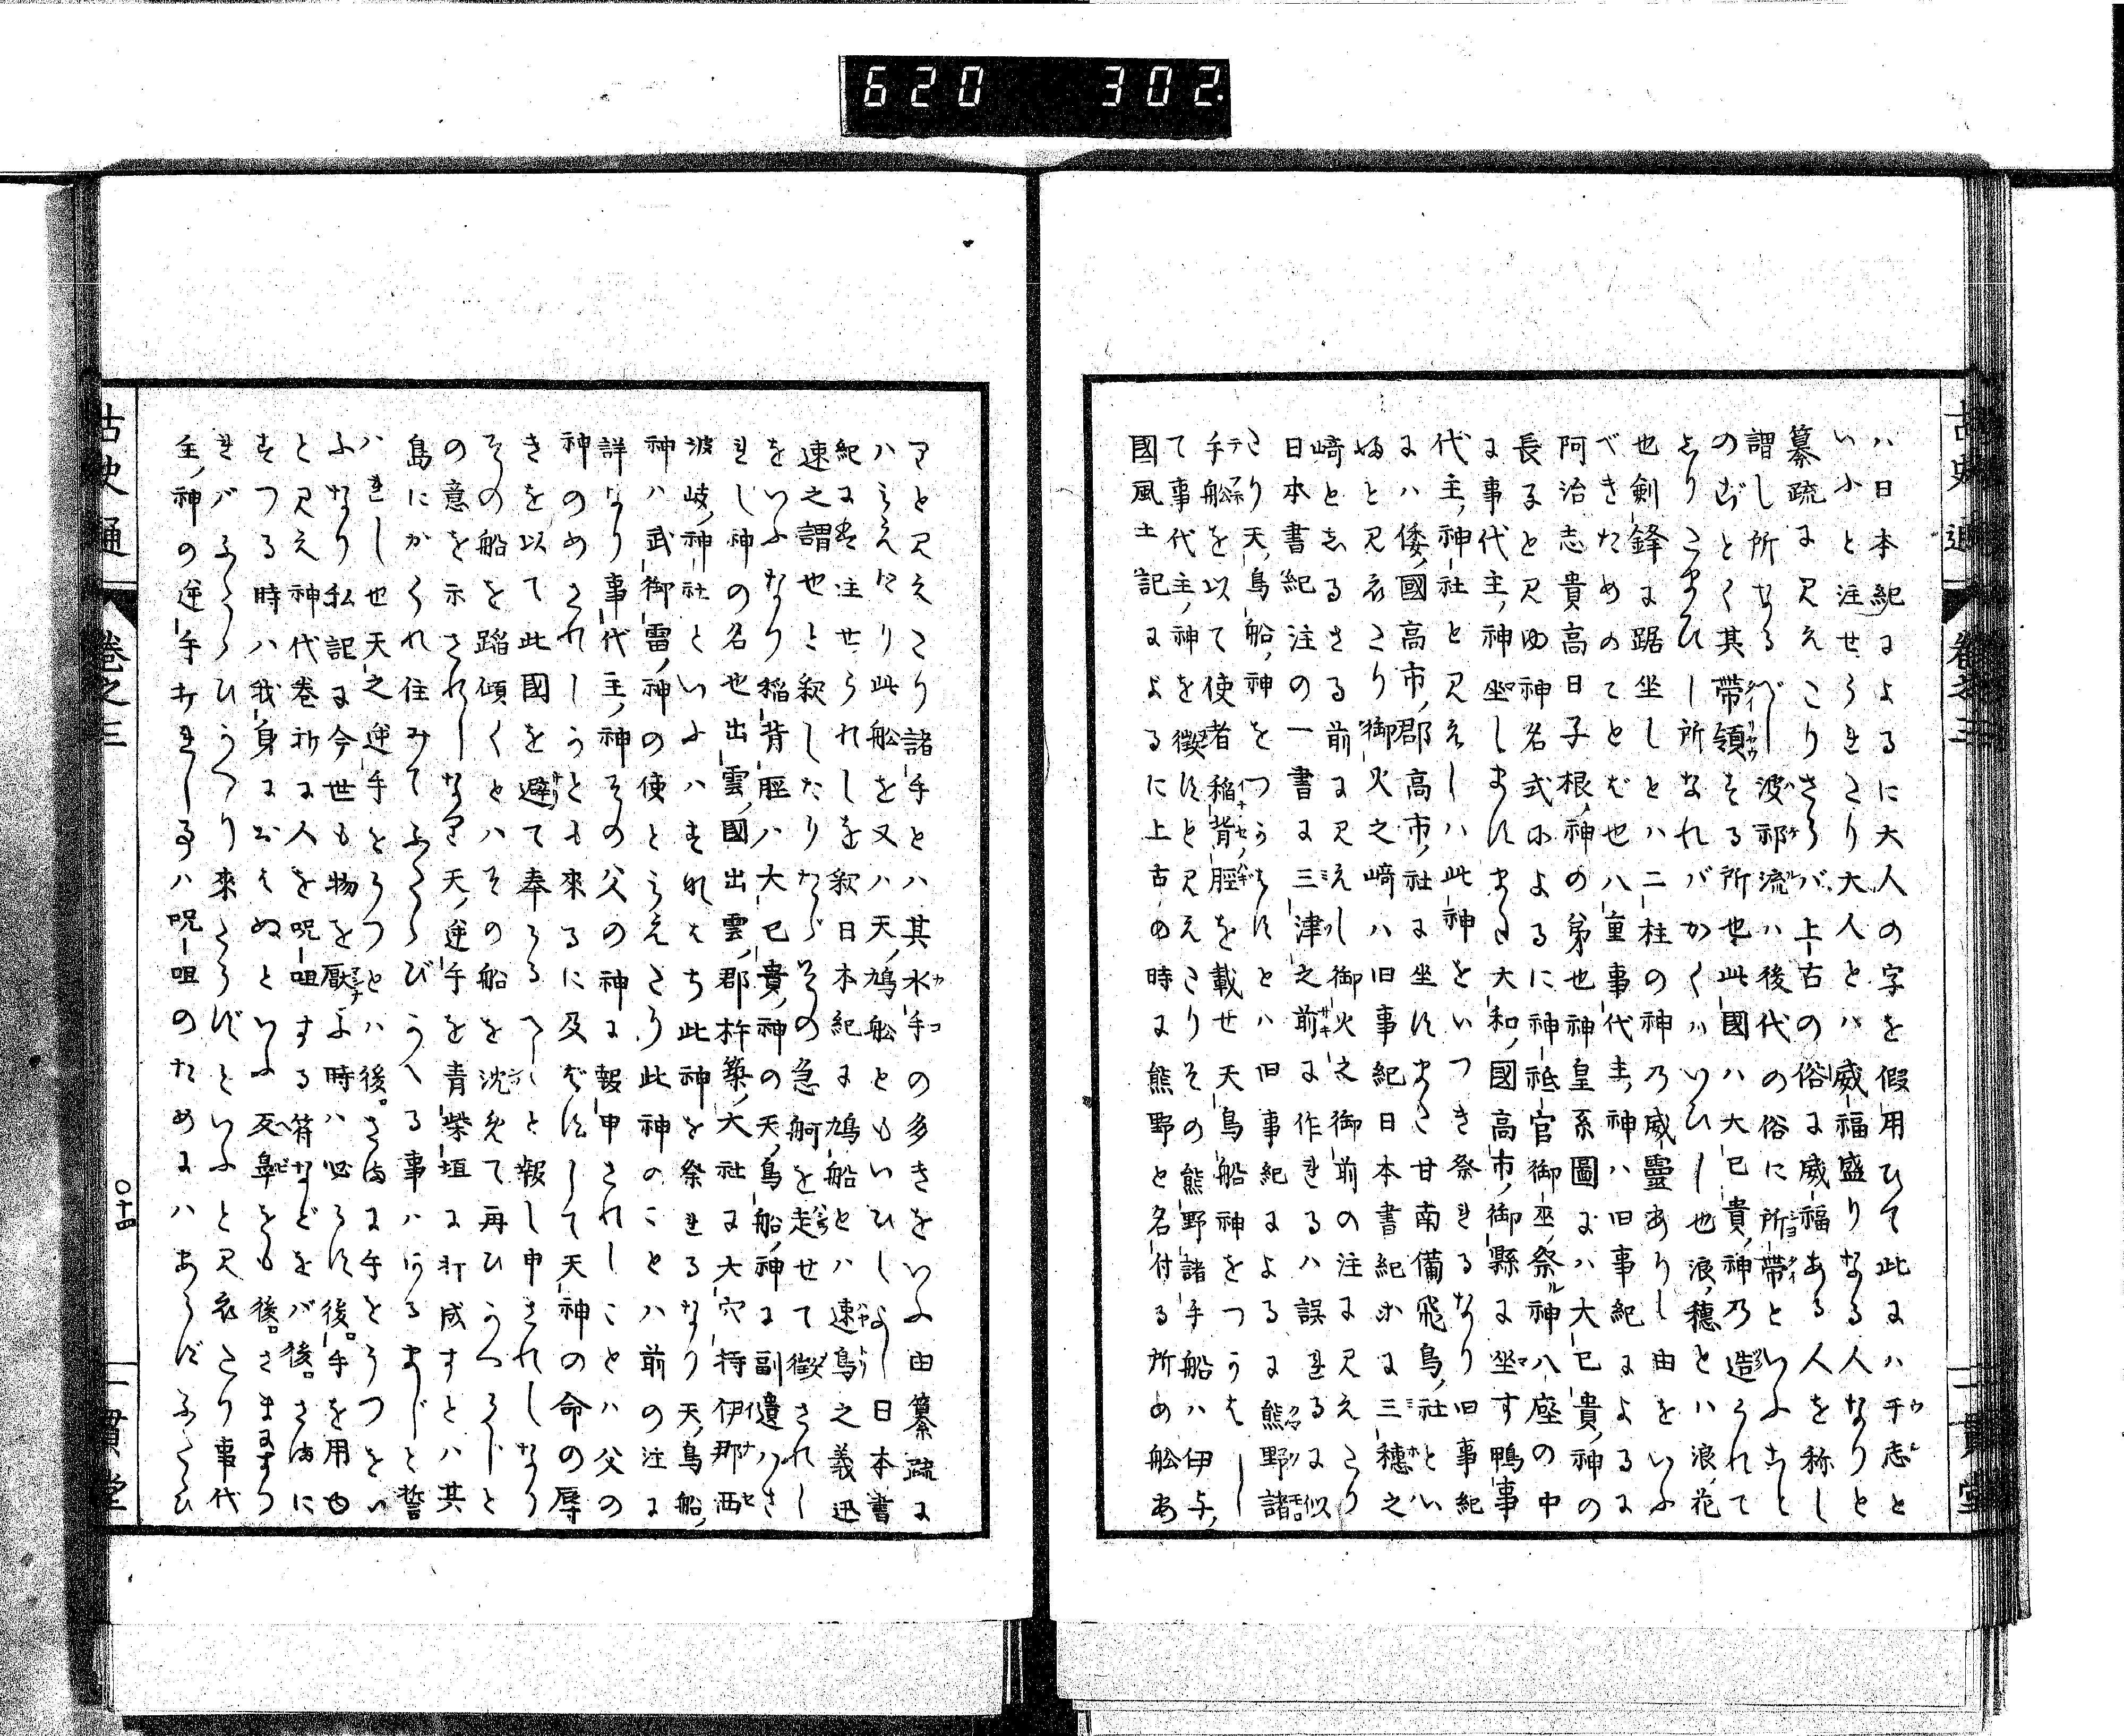 620 302.
古史通 卷之三 一貫堂
ハ日本紀によるに大人の字を假用ひて此にハ于志と
いふと注せられたり大人とハ威福盛りなる人なりと
纂疏に見えたりさらバ上古の俗に威福ある人を称し
謂し所なるべし波祁流ハ後代の俗に所帶といふこと
のごとく其帶領する所也此國ハ大己貴神乃造られて
しりたまひし所なれバかくハいひし也浪穗とハ浪花
也剣鋒に踞坐しとハ二柱の神乃威靈ありし由をいふ
べきためのてとば也八重事代主神ハ旧事紀によるに
阿治志貴高日子根神の弟也神皇系圖にハ大己貴神の
長ると見ゆ神名式によるに神祇官御巫祭神八座の中
に事代主神坐しまにまた大和國高市御縣に坐す鴨事
代主神社と見えしハ此神をいつき祭れるなり旧事紀
にハ倭國高市郡高市社に坐にまた甘南備飛鳥社とい
ぬと見えたり御火之﨑ハ旧事紀日本書紀に三穗之
﨑としるさる前に見えし御火之御前の注に見えたり
日本書紀注の一書に三津之前に作れるハ誤れるに似
たり天鳥船神をつかはにとハ旧事紀によるに熊野諸
手船を以て使者稲背脛を載せ天鳥船神をつかはし
て事代主神を徴にと見えたりその熊野諸手船ハ伊与
國風土記によるに上古の時に熊野と名付る所の船あ
りと見えたり諸手とハ其水手の多きをいふ由纂疏に
ハ見えたり此船を又ハ天鳩船ともいひしよし日本書
紀に注せられしを釈日本紀に鳩船とハ速鳥之義迅
速之謂也と釈したりたゞその急舸を走せて徴されし
をいふなり稲背脛ハ大己貴神の天鳥船神に副遣ハさ
れし神の名也出雲國出雲郡杵築大社に大穴持伊那西
波岐神社といふハすなはち此神を祭れるなり天鳥船
神ハ武御雷神の使と見えたり此神のことハ前の注に
詳なり事代主神その父の神に報申されしことハ父の
神のめされしうとも來るに及ばにして天神の命の辱
きを以て此國を避て奉らるべしと報し申されしなり
その船を蹈傾くとハその船を沈めて再ひうつらじと
の意を示されしなり天逆手を青柴垣に打成すとハ其
島にかくれ住みてふたゝびうへる事ハあるまじと誓
ハれし也天之逆手とうつとハ後さまに手をうつをい
ふなり私記に今世も物を厭ふ時ハ必らに後手を用も
と見え神代巻祈に人を呪咀する符などをバ後さまに
すつる時ハ我身におはぬといふ反鼻をも後さまにすつ
ればふたゝひうつり來らにといふと見えたり事代
主神の逆手打れし事ハ呪咀のためにハあらにふたゝひ
古史通 卷之三 〇十四 一貫堂